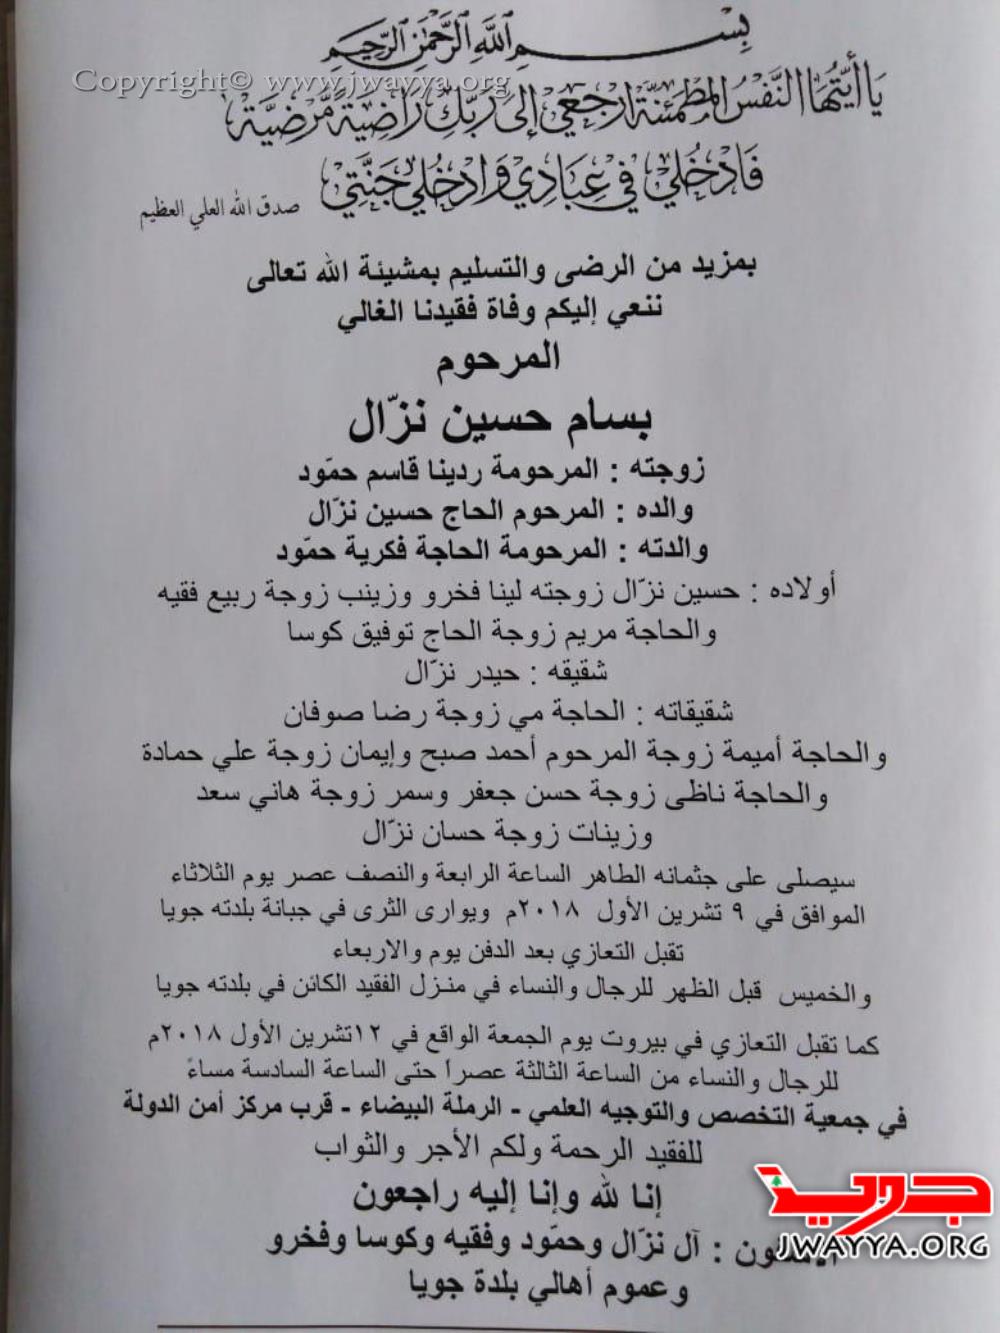 بسم الله الرحمن الرحيم
Copyright© www.jwayya.org
يا أيتها النفس المطمئنة ارجعي إلى ربك راضية مرضية
فادخلي في عبادي وادخلي جنتي
صدق الله العلي العظيم
بمزيد من الرضى والتسليم بمشيئة الله تعالى
ننعي إليكم وفاة فقيدنا الغالي
المرحوم
بسام حسين نزّال
زوجته : المرحومة ردينا قاسم حمّود
والده : المرحوم الحاج حسين نزّال
والدته : المرحومة الحاجة فكرية حمّود
أولاده : حسين نزّال زوجته لينا فخرو وزينب زوجة ربيع فقيه
والحاجة مريم زوجة الحاج توفيق كوسا
شقيقه : حيدر نزّال
شقيقاته : الحاجة مي زوجة رضا صوفان
والحاجة أميمة زوجة المرحوم أحمد صبح وإيمان زوجة علي حمادة
والحاجة ناظى زوجة حسن جعفر وسمر زوجة هاني سعد
وزينات زوجة حسان نزّال
سيصلى على جثمانه الطاهر الساعة الرابعة والنصف عصر يوم الثلاثاء
الموافق في ٩ تشرين الأول ٢٠١٨م ويوارى الثرى في جبانة بلدته جويا
تقبل التعازي بعد الدفن يوم والاربعاء
والخميس قبل الظهر للرجال والنساء في منزل الفقيد الكائن في بلدته جويا
كما تقبل التعازي في بيروت يوم الجمعة الواقع في ١٢تشرين الأول ٢٠١٨م
للرجال والنساء من الساعة الثالثة عصراً حتى الساعة السادسة مساءً
في جمعية التخصص والتوجيه العلمي - الرملة البيضاء - قرب مركز أمن الدولة
للفقيد الرحمة ولكم الأجر والثواب
إنا لله وإنا إليه راجعون
: آل نزّال وحمّود وفقيه وكوسا وفخرو
وعموم أهالي بلدة جويا
جويا
JWAYYA.ORG